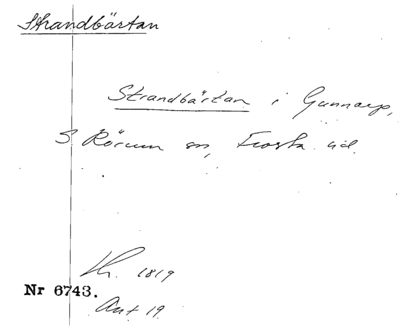 Strandbärtan
Strandbärtan i Gunnarp,
S. Rörum sn, Frosta hd.
Lh. 1819
Nr 6743.
Ant 19